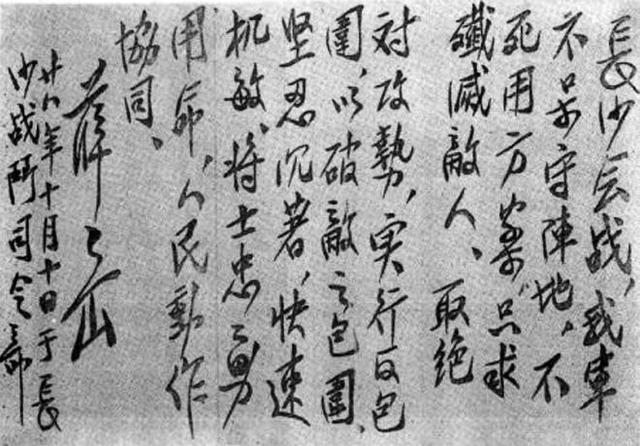 長沙会战,我軍
不呆守陣地。不
死用方案,只求
殲滅敵人、取绝
对攻勢,実行反包
圍,以破敵之包圍、
坚忍沉着,快速
机敏、将士忠勇
用命,人民動作
協同、
薛岳
廿八年十月十日于長
沙战鬥司令部